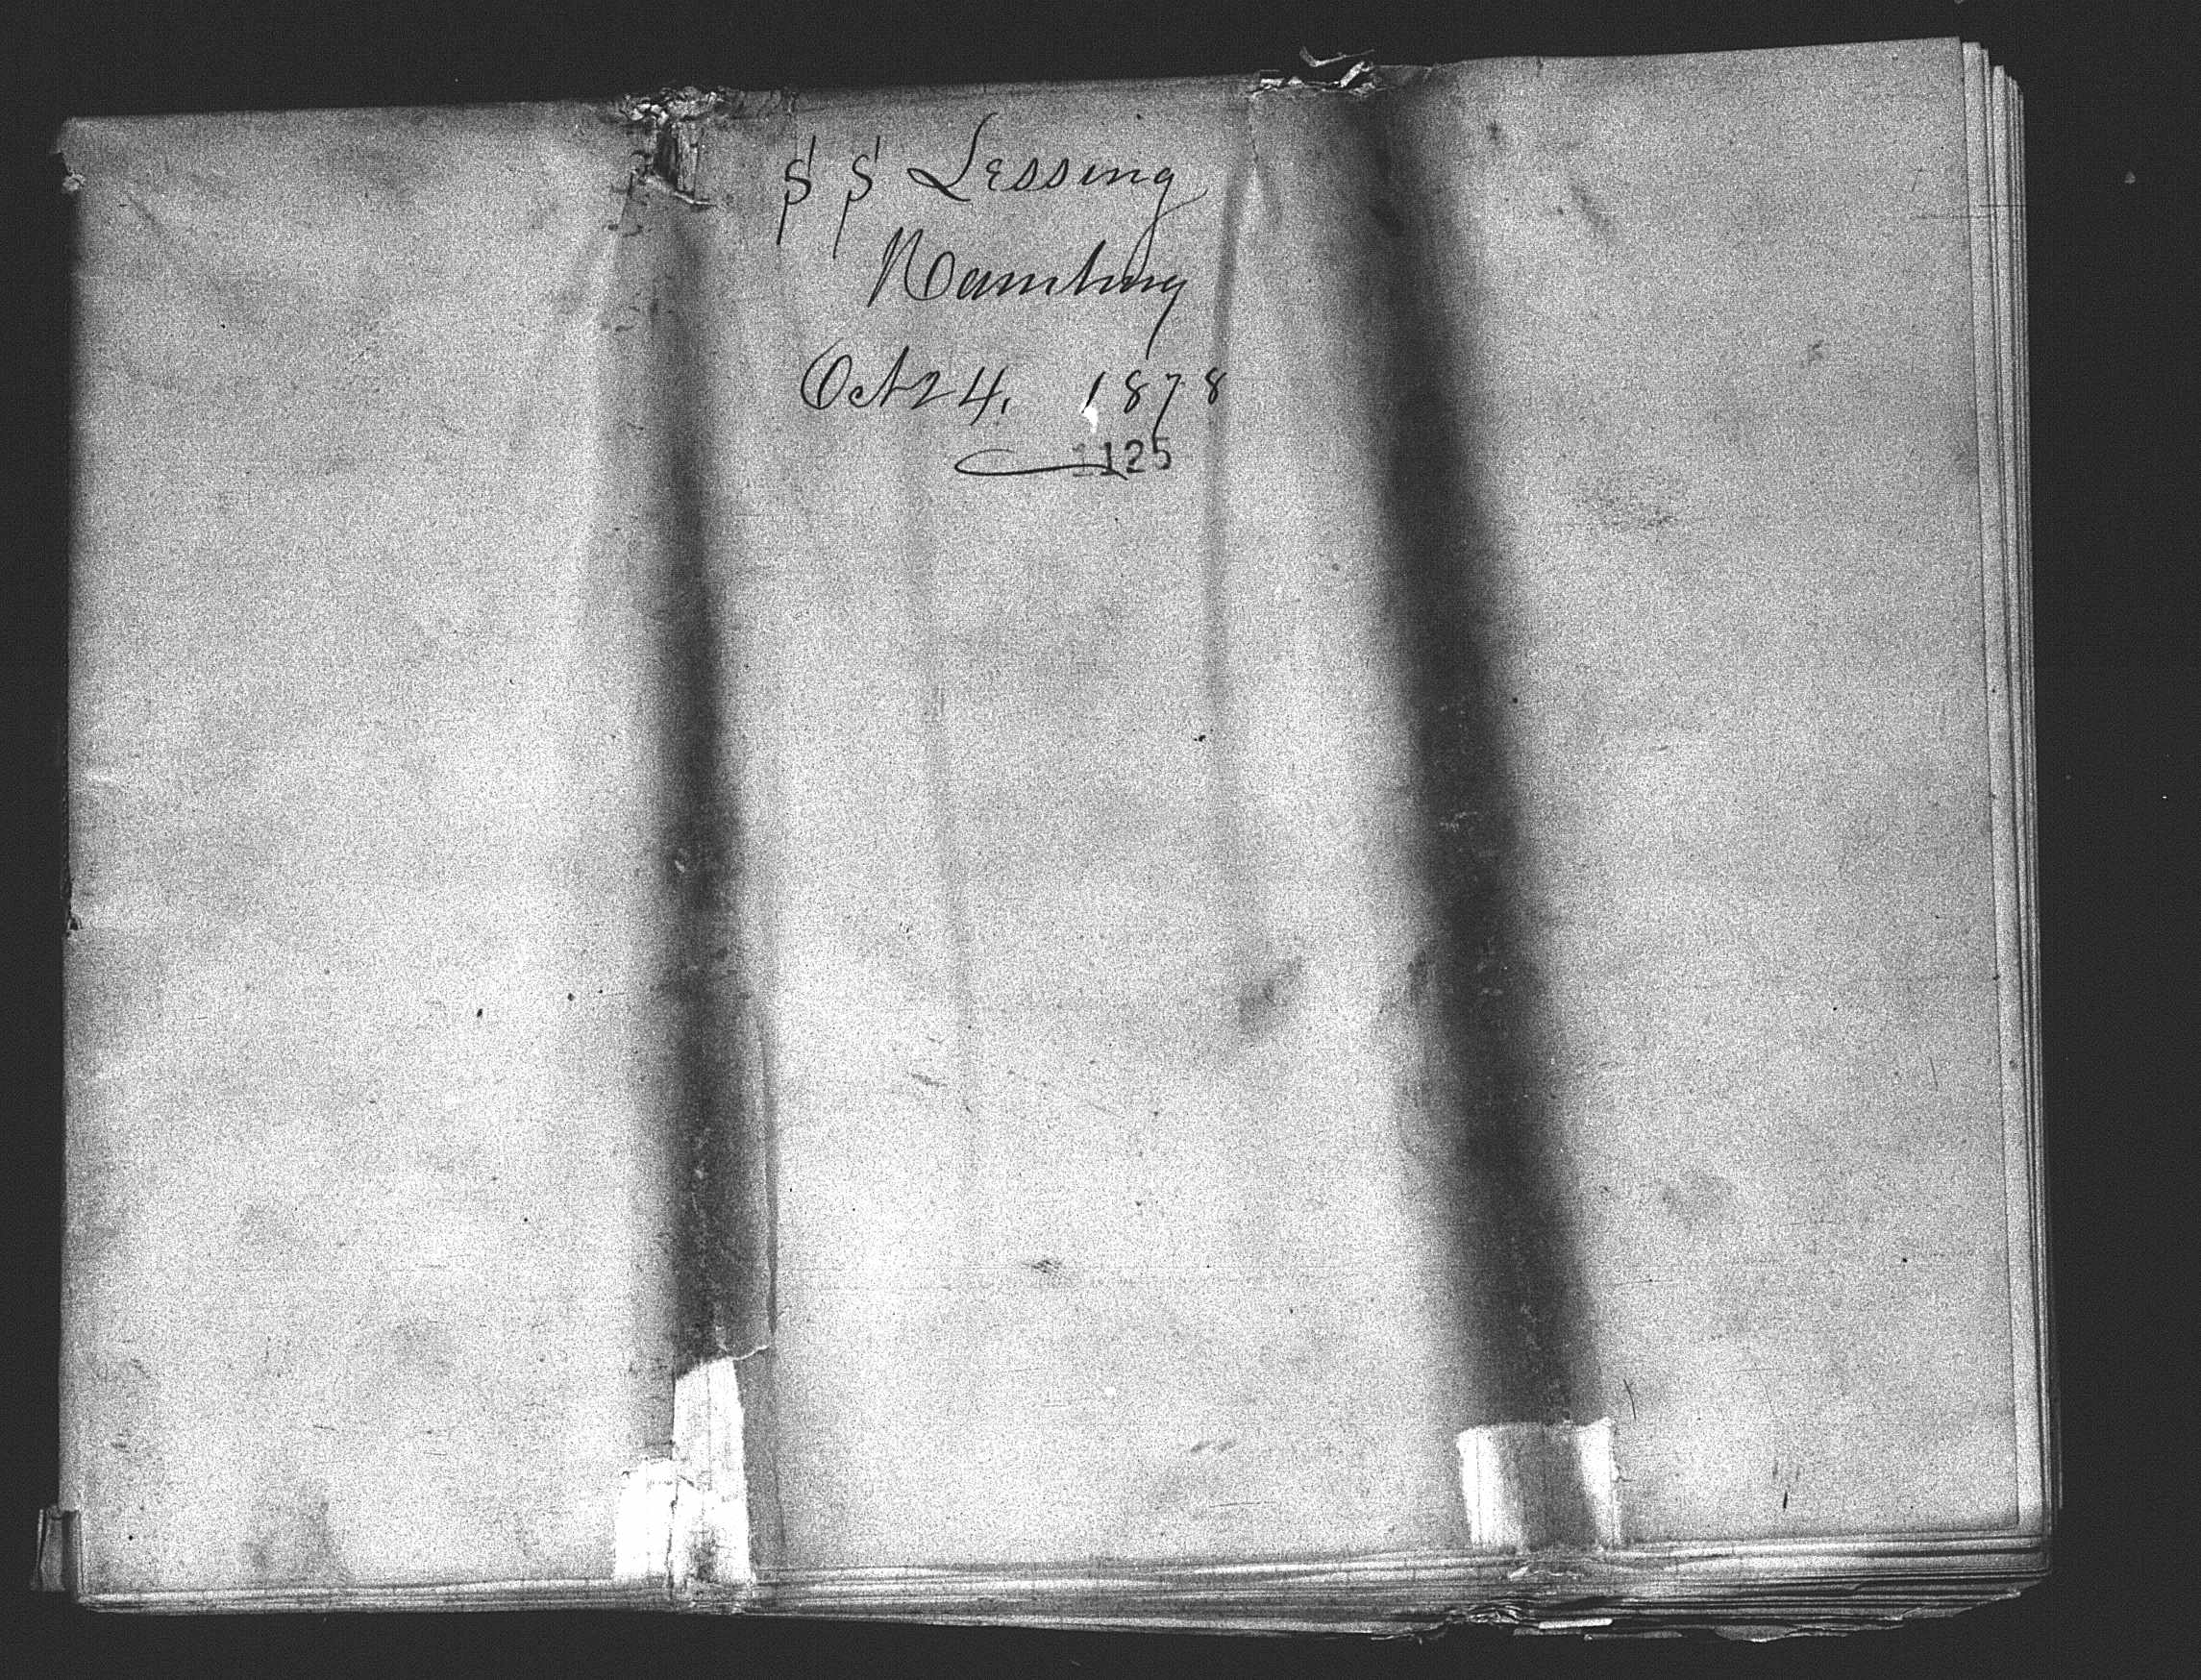 S S Lessing
Hamburg
Oct 24, 1878
1125